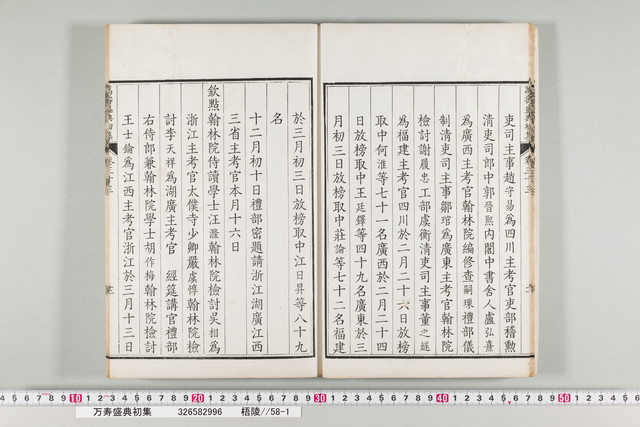 吏司主事趙守易為四川主考官吏部稽勲
清吏司郎中郭晉熙内閣中書舍人盧弘熹
為廣西主考官翰林院編修查嗣瑮禮部儀
制清吏司主事鄒琯為廣東主考官翰林院
檢討謝履忠工部虞衡清吏司主事董之
為福建主考官四川於二月二十六日放榜
取中何淮等七十一名廣西於二月二十四
日放榜取中王廷鐸等四十九名廣東於三
月初三日放榜取中莊論等七十二名福建
於三月初三日放榜取中江日昇等八十九
名
十二月初十日禮部密題請浙江湖廣江西
三省主考官本月十六日
欽點翰林院侍讀學士汪漋翰林院檢討吳相為
浙江主考官太僕寺少卿嚴虞惇翰林院檢
討李天祥為湖廣主考官 經筵講官禮部
右侍郎兼翰林院學士胡作梅翰林院檢討
王士為江西主考官浙江於三月十三日
10 20 30 40 50
万寿盛典初集 326582996 梧陵//58-1